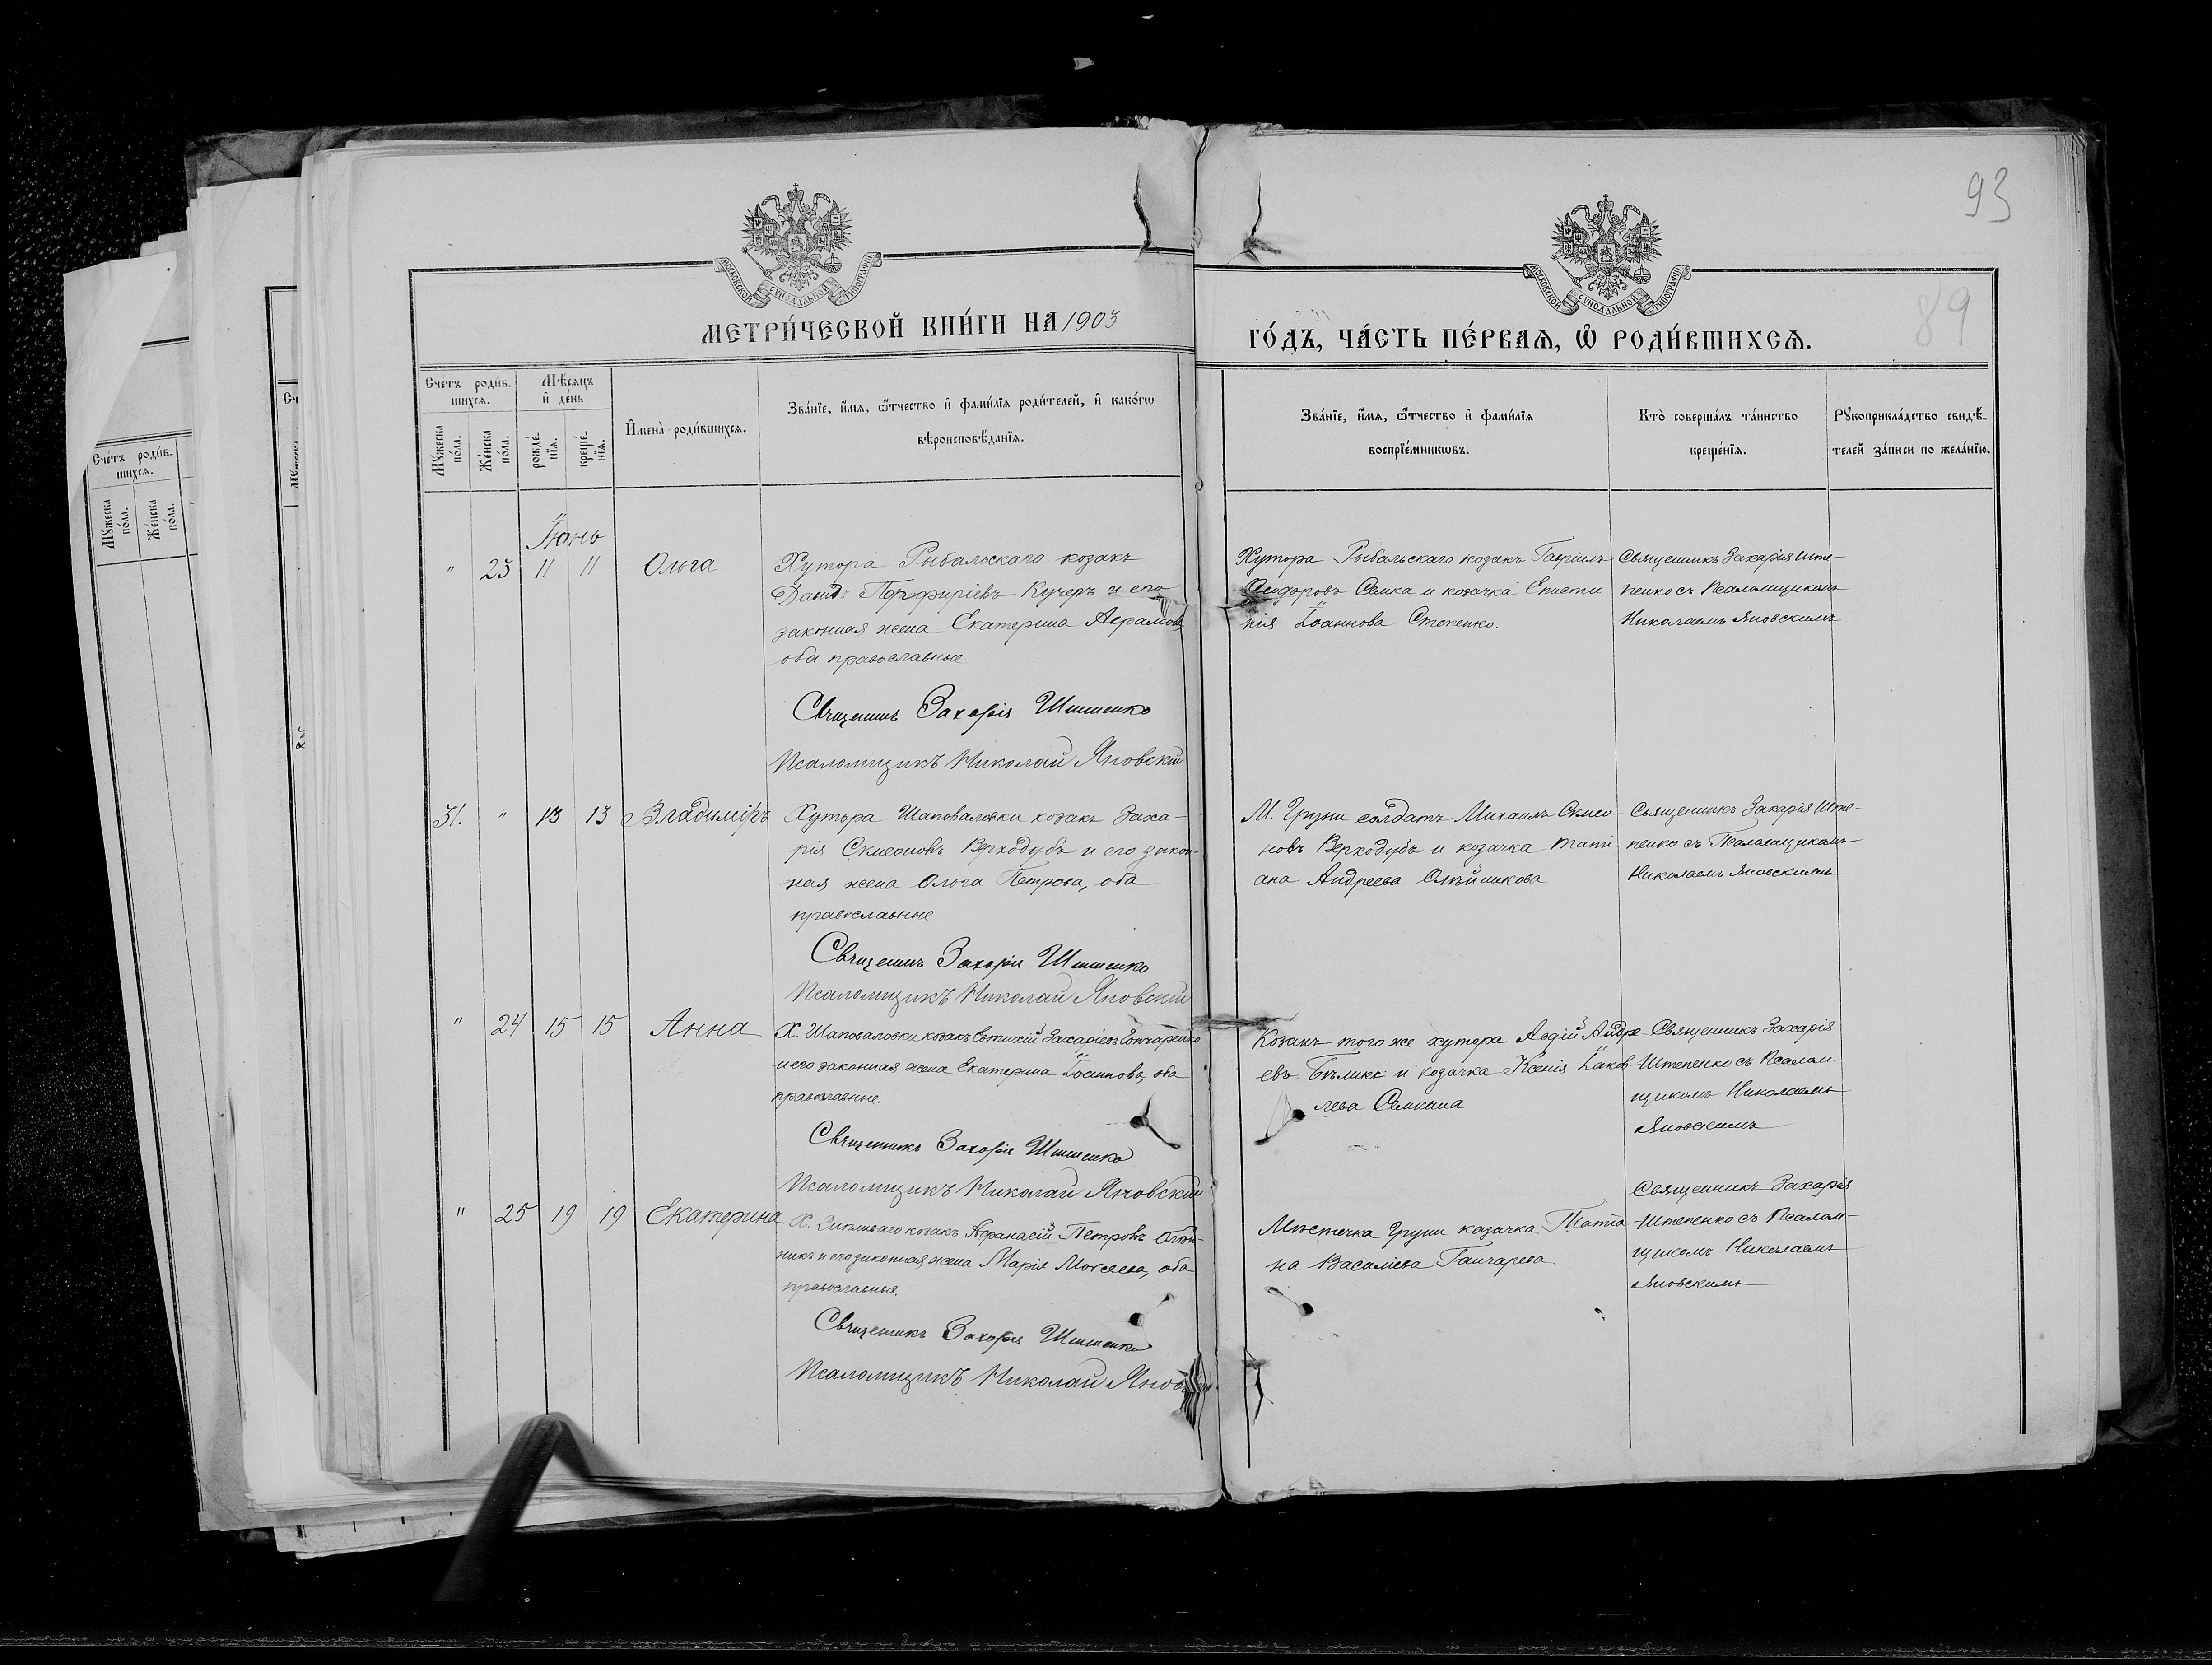 93
89
МОСКОВСКОЙ СѴНОДАЛЬНОЙ ТИПОГРАФІИ
МОСКОВСКОЙ СѴНОДАЛЬНОЙ ТИПОГРАФІИ
МЕТРИ́ЧЕСКОЙ КНИ́ГИ НА 1903
ГО́ДЪ, ЧА́СТЬ ПЕ́РВАЯ, Ѽ РОДИ́ВШИХСѦ.
Счетъ роди́в-
шихсѧ.
Мѣ́сѧцъ
и҆ де́нь
Му́жеска
по́ла.
Же́нска
по́ла.
рожде́-
нїѧ.
креще́-
нїѧ.
И҆мена̀ роди́вшихсѧ.
Зва́нїе, и҆́мѧ, ѻ҆́тчество и҆ фами́лїѧ роди́телей, и҆ како́гѡ
вѣроисповѣ́данїѧ.
Зва́нїе, и҆́мѧ, ѻ҆́тчество и҆ фами́лїѧ
воспрїе́мникѡвъ.
Кто̀ соверша́лъ та́инство
креще́нїѧ.
Рꙋкоприкла́дство свидѣ́-
телей за́писи по жела́нїю.
Счетъ роди́в-
шихсѧ.
Му́жеска
по́ла.
Же́нска
по́ла.
Іюнь
" 23 11 11 Ольга
Хутора Рыбальскаго козакъ
Давидъ Порфиріевъ Кучеръ и его
законная жена Екатерина Аврамова,
оба православные.
Священникъ Захарія
Псаломщикъ Николай Яновскій
Хутора Рыбальскаго козакъ Гавріилъ
Ѳеодоровъ Семка и козачка Еписти
нія Іоаннова Степенко.
Священникъ Захарія Ште-
пенко съ Псаломщикомъ
Николаемъ Яновскимъ
31. " 13 13 Владиміръ
Хутора Шаповаловки козакъ Заха-
рія Симеоновъ Верходубъ и его закон-
ная жена Ольга Петрова, оба
православные
Священникъ Захарія
Псаломщикъ Николай Яновскій
М. Груни солдатъ Михаилъ Симео-
новъ Верходубъ и козачка Тати-
ана Андреева Олѣйникова
Священникъ Захарія Ште-
пенко съ Псаломщикомъ
Николаемъ Яновскимъ
" 24 15 15 Анна
Х. Шаповаловки козакъ Евтихій Захаріевъ Гончаренко
и его законная жена Екатерина Іоаннова, оба
православные.
Священникъ Захарія
Псаломщикъ Николай Яновскій
Козакъ того же хутора Авдій Андре-
евъ Бѣликъ и козачка Ксенія Іаков-
лева
Священникъ Захарія
Штепенко съ Псалом-
щикомъ Николаемъ
Яновскимъ
" 25 19 19 Екатерина
Х. козакъ Аѳанасій Петровъ Олѣй-
никъ и его законная жена Марія Моѵсеева, оба
православные.
Священникъ Захарія
Псаломщикъ Николай
Мѣстечка Груни козачка Татіа-
на Василіева Ганчарева
Священникъ Захарія
Штепенко съ Псалом-
щикомъ Николаемъ
Яновскимъ